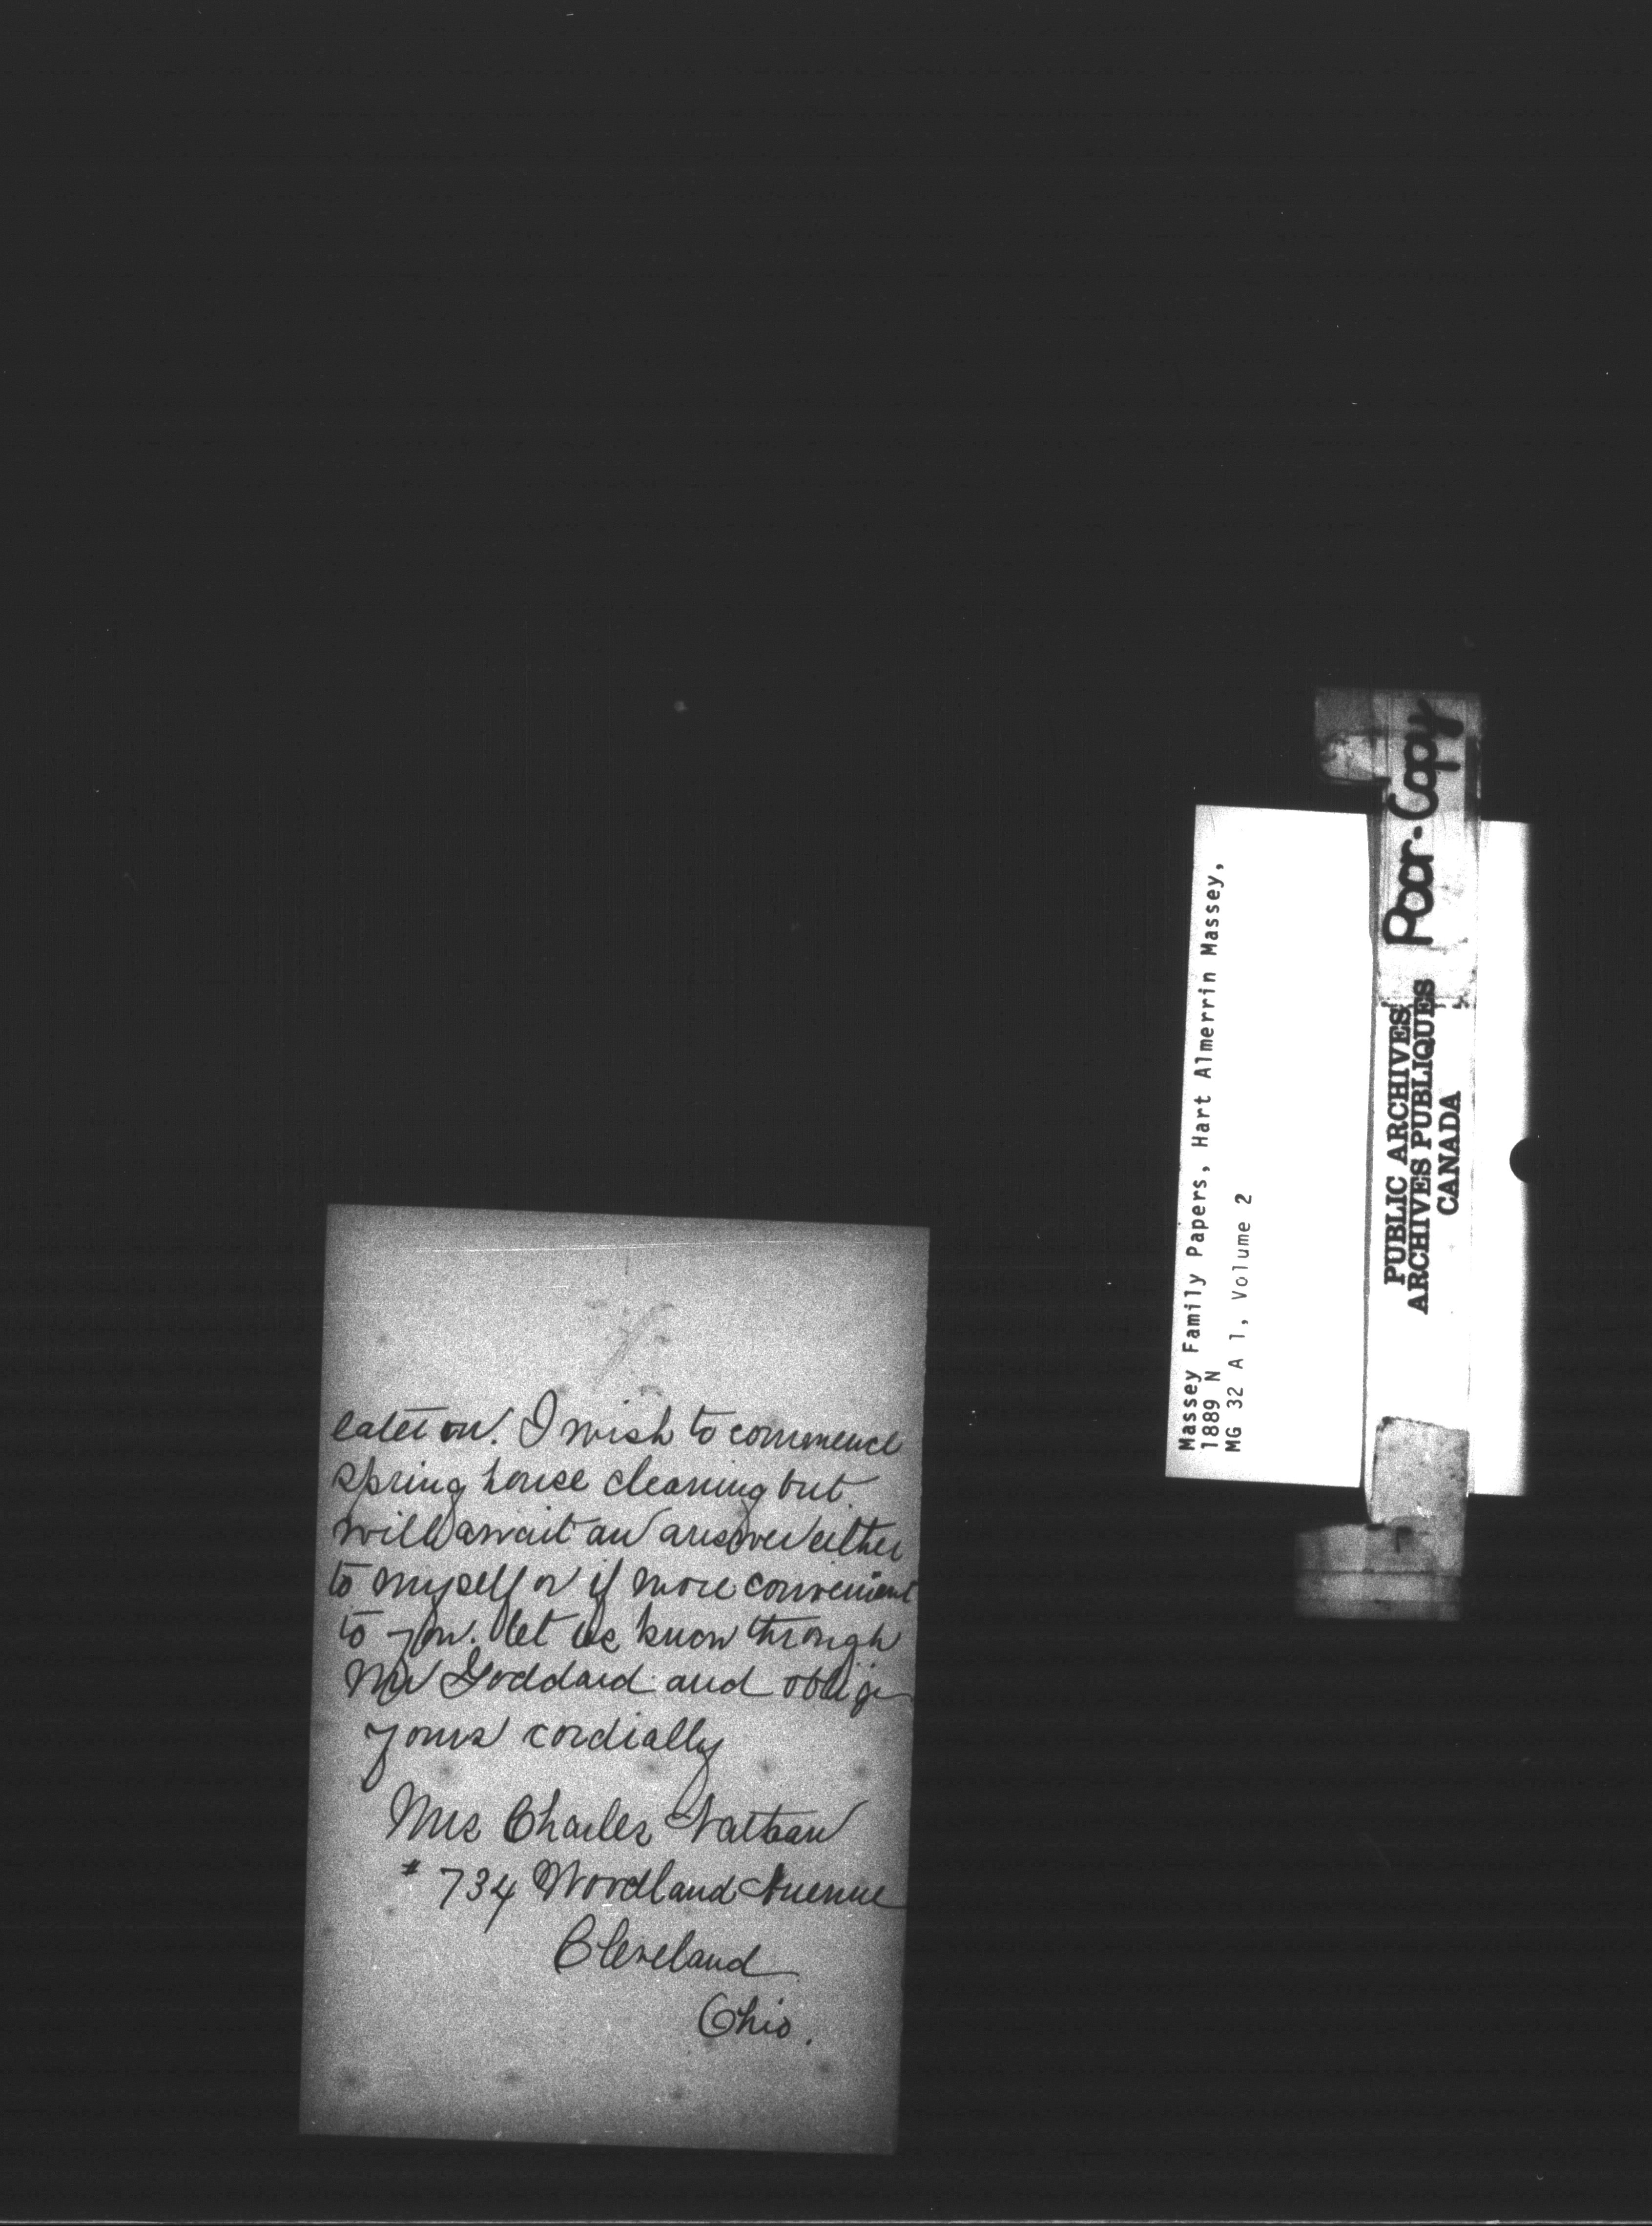 later on. I wish to commence
spring house cleaning but
will await an answer either
to myself or if more convenient
to you. let us know through
Mr Goddard and oblige
yours cordially
Mrs Charles Nathan
# 734 Woodland Avenue
Cleveland
Ohio.
Massey Family Papers, Hart Almerrin Massey,
1889 N
MG 32 A 1, Volume 2
PUBLIC ARCHIVES
ARCHIVES PUBLIQUES
CANADA
Poor-Copy